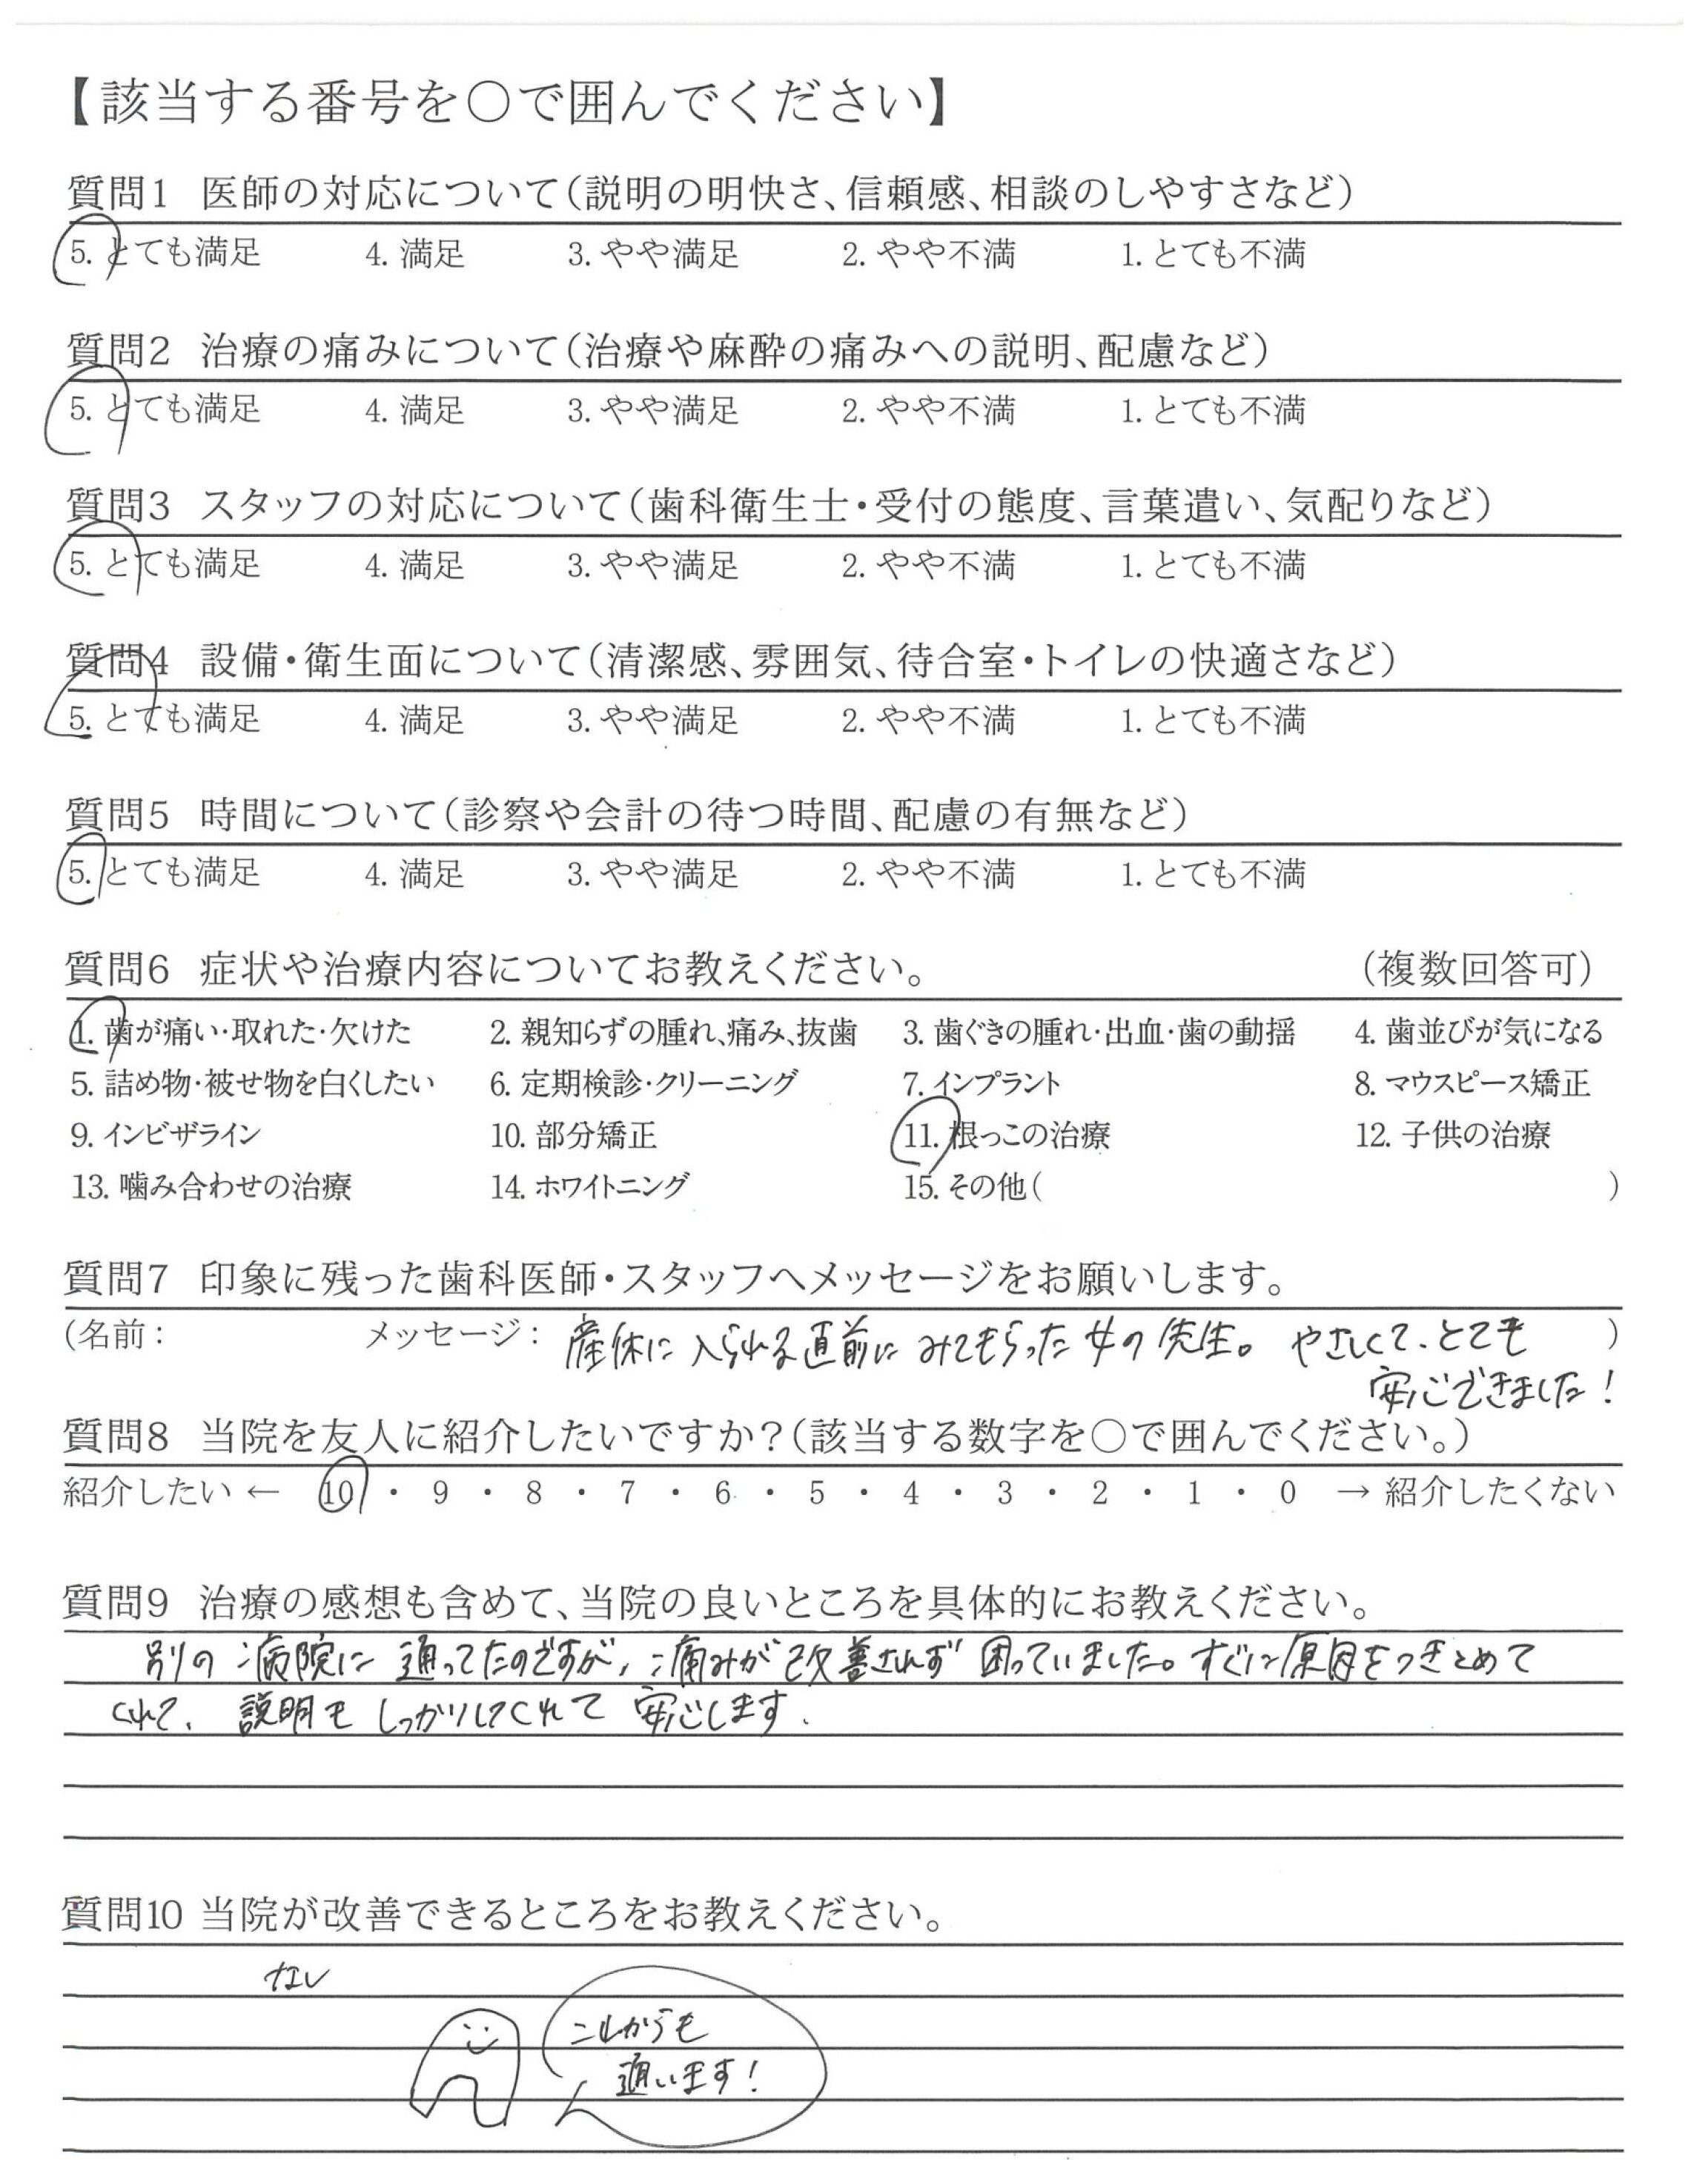 【該当する番号を〇で囲んでください】
質問1 医師の対応について(説明の明快さ、信頼感、相談のしやすさなど)
5. とても満足 4. 満足 3. やや満足 2. やや不満 1. とても不満
質問2 治療の痛みについて(治療や麻酔の痛みへの説明、配慮など)
5. とても満足 4. 満足 3. やや満足 2. やや不満 1. とても不満
質問3 スタッフの対応について(歯科衛生士・受付の態度、言葉遣い、気配りなど)
5. とても満足 4. 満足 3. やや満足 2. やや不満 1. とても不満
質問4 設備・衛生面について(清潔感、雰囲気、待合室・トイレの快適さなど)
5. とても満足 4. 満足 3. やや満足 2. やや不満 1. とても不満
質問5 時間について(診察や会計の待つ時間、配慮の有無など)
5. とても満足 4. 満足 3. やや満足 2. やや不満 1. とても不満
質問6 症状や治療内容についてお教えください。 (複数回答可)
1. 歯が痛い・取れた・欠けた 2. 親知らずの腫れ、痛み、抜歯 3. 歯ぐきの腫れ・出血・歯の動揺 4. 歯並びが気になる
5. 詰め物・被せ物を白くしたい 6. 定期検診・クリーニング 7. インプラント 8. マウスピース矯正
9. インビザライン 10. 部分矯正 11. 根っこの治療 12. 子供の治療
13. 噛み合わせの治療 14. ホワイトニング 15. その他( )
質問7 印象に残った歯科医師・スタッフへメッセージをお願いします。
(名前: メッセージ: 産休に入られる直前にみてもらった女の先生。やさしくて、とても )
安心できました!
質問8 当院を友人に紹介したいですか?(該当する数字を〇で囲んでください。)
紹介したい ← 10 ・ 9 ・ 8 ・ 7 ・ 6 ・ 5 ・ 4 ・ 3 ・ 2 ・ 1 ・ 0 → 紹介したくない
質問9 治療の感想も含めて、当院の良いところを具体的にお教えください。
別の病院に通ってたのですが、痛みが改善されず困っていました。すぐに原因をつきとめて
くれて、説明もしっかりしてくれて安心します。
質問10 当院が改善できるところをお教えください。
なし
これからも
通います!